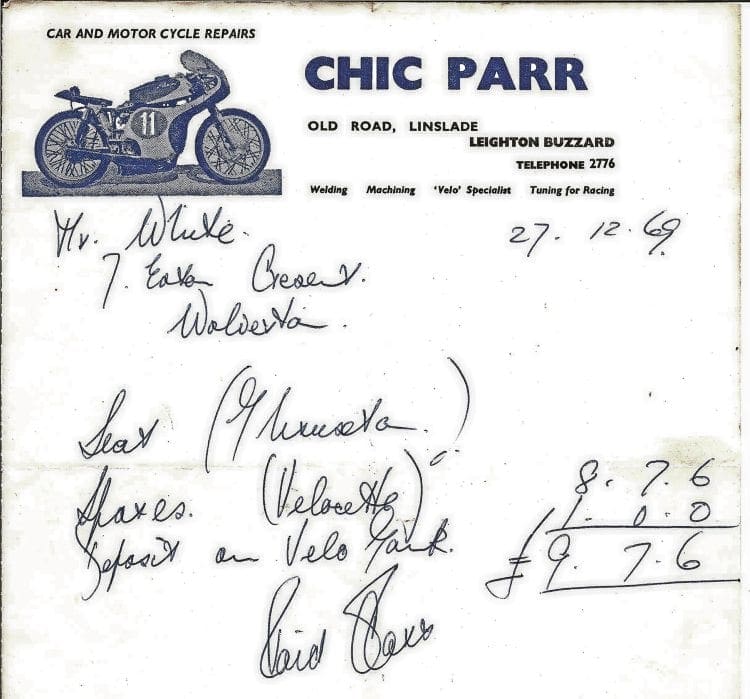 CAR AND MOTOR CYCLE REPAIRS
11
CHIC PARR
OLD ROAD, LINSLADE
LEIGHTON BUZZARD
TELEPHONE 2776
Welding Machining 'Velo' Specialist Tuning for Racing
Mr. White. 27. 12. 69
7. Eaton Cresent.
Wolverton.
Seat (Thruxton.)
Spares. (Velocette) 8. 7. 6
Deposit on Velo Tank. 1. 0. 0
£9. 7. 6
Paid Parr